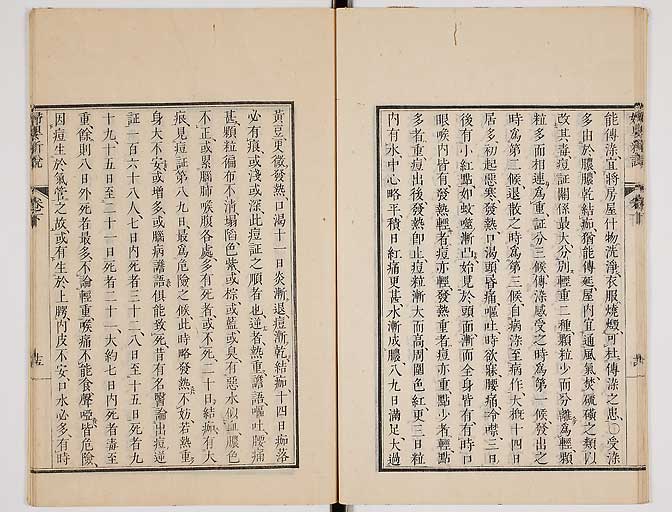 能傳染、宜將房屋什物洗淨、衣服燒燬、可杜傳染之患、〇受染
多由於膿、膿乾結痂、猶能傳延、屋內宜通風氣、焚硫磺之類、以
改其毒、痘証關係最大、分別輕重二種、顆粒少而分離為輕、顆
粒多而相連為重、証分三候、傳染感受之時為第一候、發出之
時為第二候、退散之時為第三候、自病染至病作、大概十四日
居多、初起惡寒、發熱、口渴、頭昏痛、嘔吐、時欲寐、腰痛、冷噤、三日
後有小紅點、如蚊噬、漸凸、始見於頭面、漸而全身皆有、有時口
眼喉內皆有、發熱輕者、痘亦輕、發熱重者、痘亦重、點少者輕、點
多者重、痘出後、發熱即止、痘粒漸大而高、周圍色紅、更三日、粒
內有水、中心略平積日、紅痛更甚、水漸成膿、八九日滿足、大過
黃豆、更微發熱、口渴、十一日炎漸退、痘漸乾、結痂、十四日痂落
必有痕、或淺或深、此痘証之順者也、逆者熱重、譫語、嘔吐、腰痛
甚、顆粒徧布不潰、塌陷、色紫、或棕、或藍、或臭、有惡水、似血膿、色
不正、或累腦肺喉腹各處、多有死者、或不死、二十日結痂、有大
痕、見痘証第八九日、最為危險之候、此時略發熱不妨、若熱重、
身大不安、或增多、或腦病譫語、俱能致死、昔有名醫論出痘逆
証一百六十八人、七日內死者三十二、八日至十五日死者九
十九、十五日至二十一日死者二十一、大約七日內死者毒至
重、餘則八日外死者最多、不論輕重、喉痛不能食、聲啞、皆危險、
因痘生於氣管之故、或有生於上腭內皮、不安、口水必多、有時
婦嬰新說
卷